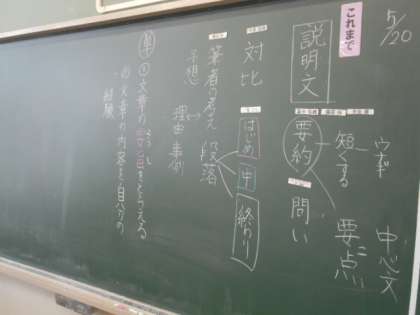 5/20
これまで
説明文
ウナギ
短くする
要約
中心文
要点
問い
対比
はじめ
中
終わり
段落
筆者の考え
予想
理由
事例
単
①文章の要旨をとらえる
ようし
の文章の内容を自分の
経験